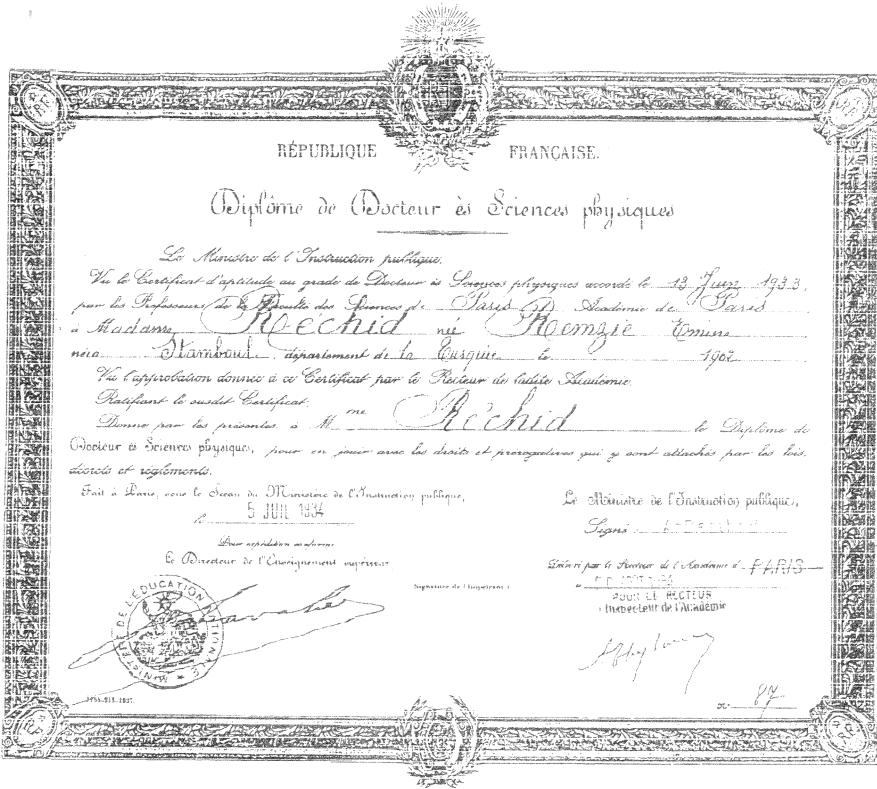 RÉPUBLIQUE FRANÇAISE.
Diplôme de Docteur ès Sciences physiques
Le Ministre de l'Instruction publique,
Vu le Certificat d'aptitude au grade de Docteur ès Sciences physiques accordé le 13 Juin 1933,
par les Professeurs de la Faculté des Sciences de Paris Académie de Paris
à Madame Réchid née Remzie
né à Stamboul, département de la Turquie le 1902
Vu l'approbation donnée à ce Certificat par le Recteur de ladite Académie.
Ratifiant le susdit Certificat.
Donne par les présentes à M me Réchid le Diplôme de
Docteur ès Sciences physiques, pour en jouir avec les droits et prérogatives qui y sont attachés par les lois,
décrets et règlements.
Fait à Paris, sous le Sceau du Ministère de l'Instruction publique,
le 5 JUIL 1934
Pour expédition conforme
Le Directeur de l'Enseignement supérieur
MINISTÈRE DE L'ÉDUCATION NATIONALE
Le Ministre de l'Instruction publique,
Signé
Délivré par le Recteur de l'Académie d PARIS
POUR LE RECTEUR
l'Inspecteur de l'Académie
Signature de l'Impétrant :
N° 87
RF
RF
RF
RF